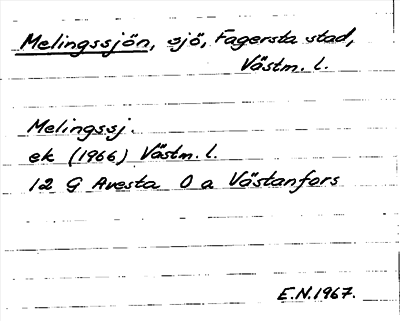 Melingssjön, sjö, Fagersta stad,
Västm. l.
Melingssj.
ek (1966) Västm. l.
12 G Avesta 0 a Västanfors
E.N.1967.